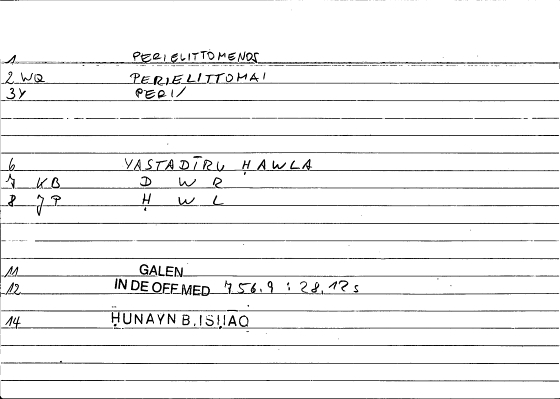 1 PERIELITTOMENOS
2 WQ PERIELITTOMAI
3Y PERI/
6 YASTADĪRU ḤAWLA
7 KB D W R
8 JP Ḥ W L
11 GALEN
12 IN DE OFF MED 756.9 : 28.12s
14 ḤUNAYN B. ISḤAQ